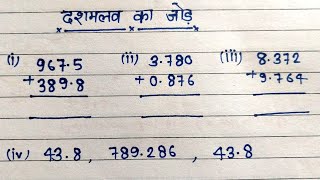 दशमलव का जोड़
(i) 967.5 (ii) 3.780 (iii) 8.372
+389.8 +0.876 +9.764
(iv) 43.8, 789.286, 43.8